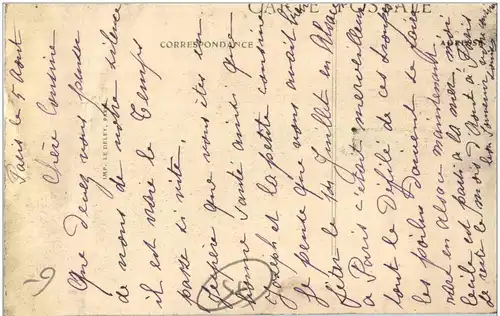 CARTE POSTALE
CORRESPONDANCE
ADRESSE
IMP. LE DELEY, PARIS
Paris le 5 Aout
Chère Cousine
Que devez vous penser
de nous de notre silence
il est vrai le temps
passe si vite.
J'espère que vous êtes en
bonne santé ainsi que
Joseph et la petite cousine
Je pense que vous avait bien
fêter le 14 Juillet en Alsace
a Paris c'était merveilleux
tout le Défilé de ces troupes
les poilus doivent se faire
rare en alsace maintenant
Cécile est parti a la mer, moi
je reste le mois d'Aout a Paris
bon souvenir